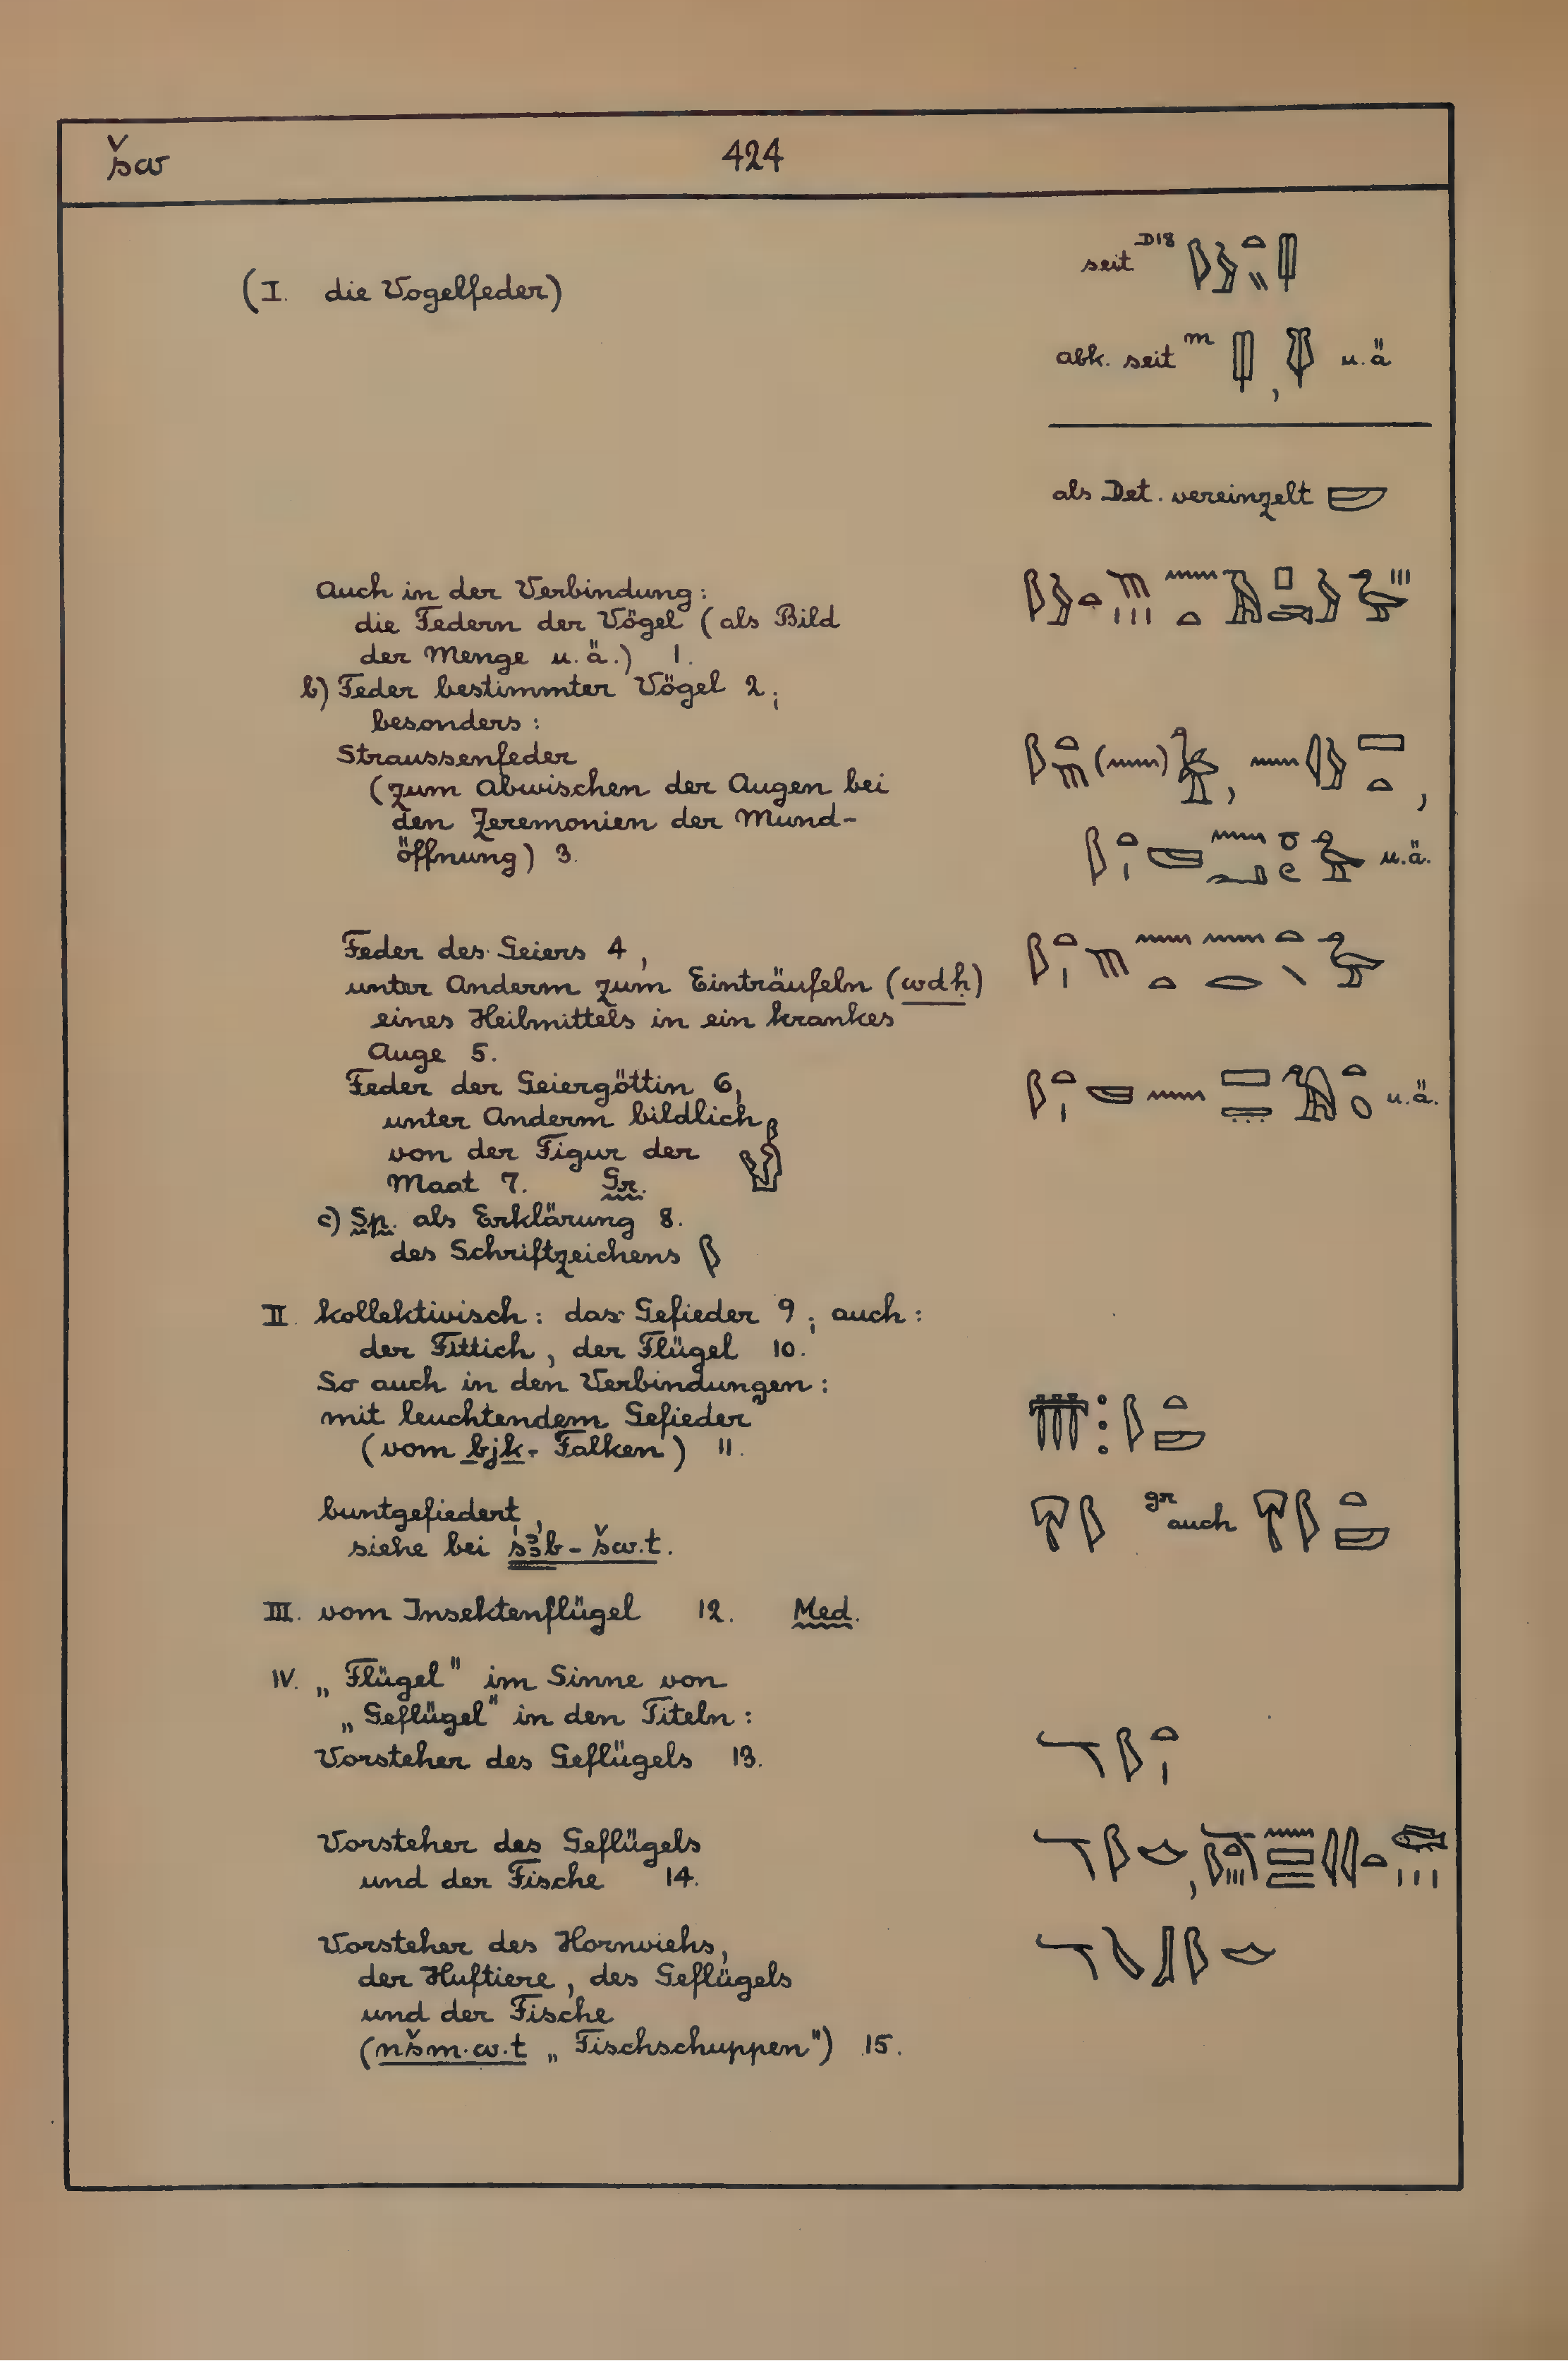 šw
424
(I. die Vogelfeder)
seit D18
abk. seit m , u.ä
als Det. vereinzelt
Auch in der Verbindung:
die Federn der Vögel (als Bild
der Menge u.ä.) 1.
b) Feder bestimmter Vögel 2;
besonders:
Straussenfeder
(zum Abwischen der Augen bei
den Zeremonien der Mund-
öffnung) 3.
u.ä.
Feder des Geiers 4,
unter Anderm zum Einträufeln (wdḥ)
eines Heilmittels in ein krankes
Auge 5.
Feder der Geiergöttin 6,
u.ä.
unter Anderm bildlich
von der Figur der
Maat 7. Gr.
c) Sp. als Erklärung 8.
des Schriftzeichens
II kollektivisch: das Gefieder 9; auch:
der Fittich, der Flügel 10.
So auch in den Verbindungen:
mit leuchtendem Gefieder
(vom bjk-Falken) 11.
buntgefiedert,
gr auch
siehe bei sꜣb-šw.t.
III. vom Insektenflügel 12. Med.
IV. „Flügel" im Sinne von
„Geflügel" in den Titeln:
Vorsteher des Geflügels 13.
Vorsteher des Geflügels
und der Fische 14.
Vorsteher des Hornviehs,
der Huftiere, des Geflügels
und der Fische
(nšm.w.t „Fischschuppen") 15.